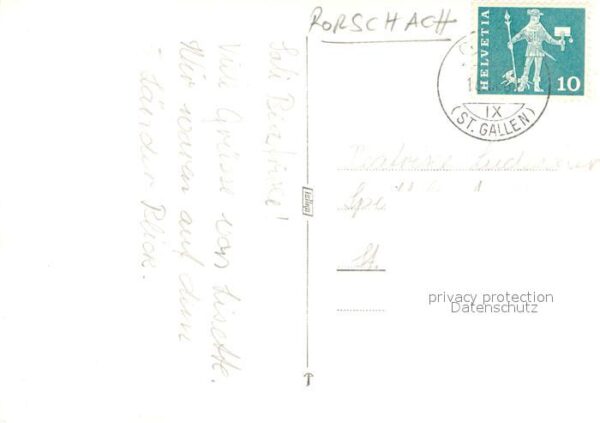 RORSCHACH
HELVETIA
10
IX
(ST. GALLEN)
Sali Beatrice!
Viele Grüsse von Lisette.
Wir waren auf dem
5 Länder Blick.
Beatrice
St.
privacy protection
Datenschutz